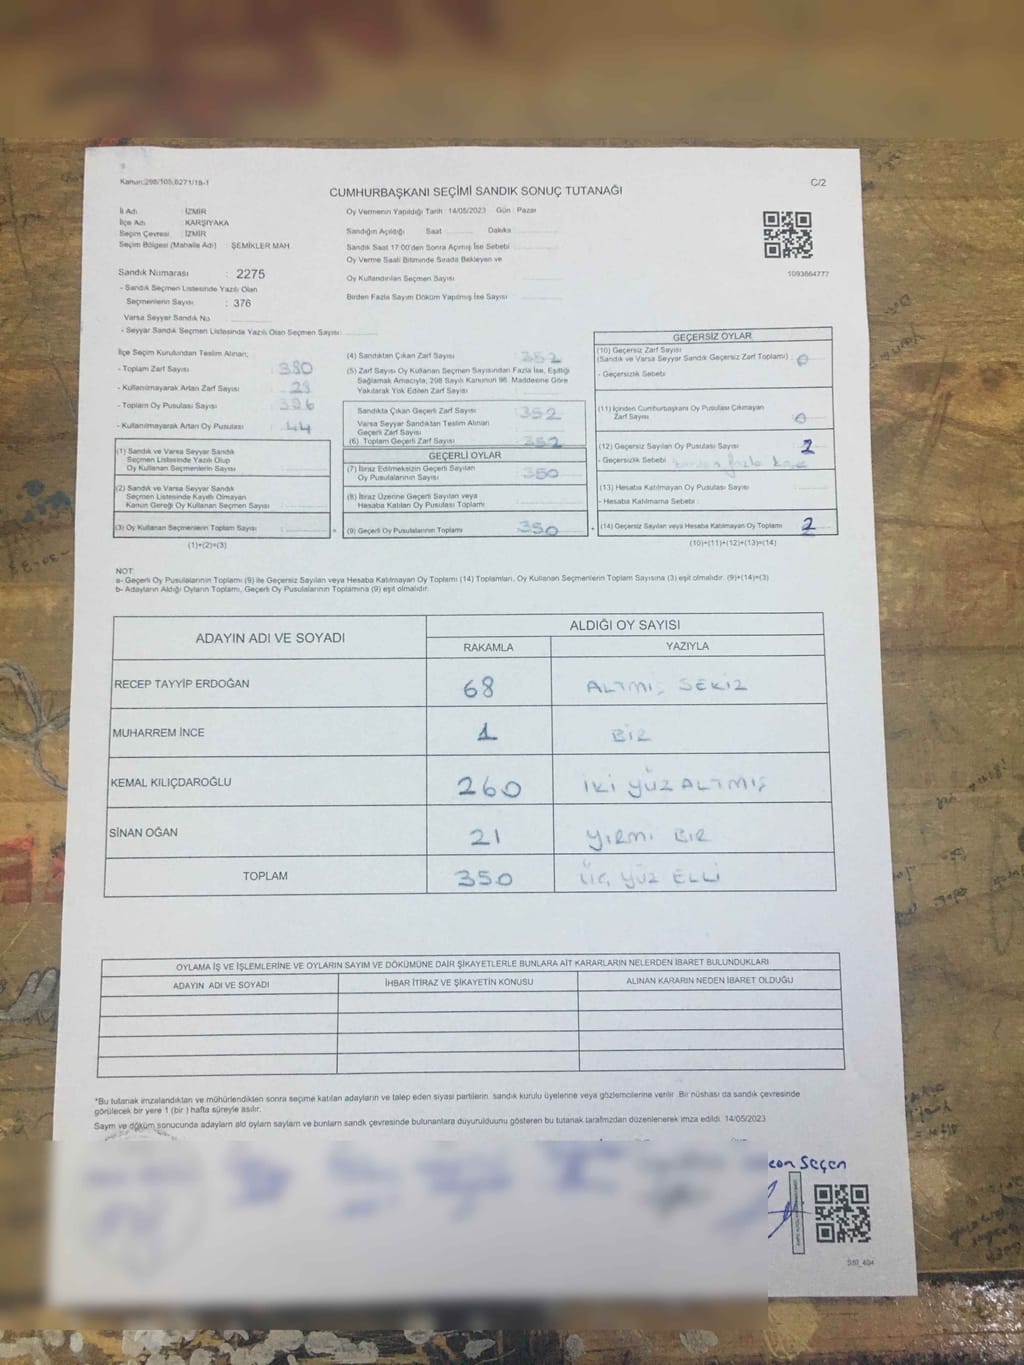 Kanun:298/105,6271/18-1
CUMHURBAŞKANI SEÇİMİ SANDIK SONUÇ TUTANAĞI
C/2
İl Adı : İZMİR
İlçe Adı : KARŞIYAKA
Seçim Çevresi : İZMİR
Seçim Bölgesi (Mahalle Adı) : ŞEMİKLER MAH.
Sandık Numarası : 2275
- Sandık Seçmen Listesinde Yazılı Olan
Seçmenlerin Sayısı : 376
Varsa Seyyar Sandık No
- Seyyar Sandık Seçmen Listesinde Yazılı Olan Seçmen Sayısı:
Oy Vermenin Yapıldığı Tarih :14/05/2023 Gün : Pazar
Sandığın Açıldığı Saat Dakika
Sandık Saat 17:00'den Sonra Açımış İse Sebebi
Oy Verme Saati Bitiminde Sırada Bekleyen ve
Oy Kullandırılan Seçmen Sayısı
Birden Fazla Sayım Döküm Yapılmış İse Sayısı
1093864777
İlçe Seçim Kurulundan Teslim Alınan;
- Toplam Zarf Sayısı : 380
- Kullanılmayarak Artan Zarf Sayısı : 28
- Toplam Oy Pusulası Sayısı : 396
- Kullanılmayarak Artan Oy Pusulası : 44
(1) Sandık ve Varsa Seyyar Sandık
Seçmen Listesinde Yazılı Olup
Oy Kullanan Seçmenlerin Sayısı
(2) Sandık ve Varsa Seyyar Sandık
Seçmen Listesinde Kayıtlı Olmayan
Kanun Gereği Oy Kullanan Seçmen Sayısı
(3) Oy Kullanan Seçmenlerin Toplam Sayısı :
(1)+(2)=(3)
(4) Sandıktan Çıkan Zarf Sayısı : 352
(5) Zarf Sayısı Oy Kullanan Seçmen Sayısından Fazla İse, Eşitliği
Sağlamak Amacıyla; 298 Sayılı Kanunun 98. Maddesine Göre
Yakılarak Yok Edilen Zarf Sayısı
Sandıkta Çıkan Geçerli Zarf Sayısı : 352
Varsa Seyyar Sandıktan Teslim Alınan
Geçerli Zarf Sayısı
(6) Toplam Geçerli Zarf Sayısı : 352
GEÇERLİ OYLAR
(7) İtiraz Edilmeksizin Geçerli Sayılan
Oy Pusulalarının Sayısı : 350
(8) İtiraz Üzerine Geçerli Sayılan veya
Hesaba Katılan Oy Pusulası Toplamı
(9) Geçerli Oy Pusulalarının Toplamı : 350
GEÇERSİZ OYLAR
(10) Geçersiz Zarf Sayısı
(Sandık ve Varsa Seyyar Sandık Geçersiz Zarf Toplamı) : 0
- Geçersizlik Sebebi
(11) İçinden Cumhurbaşkanı Oy Pusulası Çıkmayan
Zarf Sayısı : 0
(12) Geçersiz Sayılan Oy Pusulası Sayısı : 2
- Geçersizlik Sebebi : birden fazla kaşe
(13) Hesaba Katılmayan Oy Pusulası Sayısı
- Hesaba Katılmama Sebebi :
(14) Geçersiz Sayılan veya Hesaba Katılmayan Oy Toplamı : 2
(10)+(11)+(12)+(13)=(14)
NOT:
a- Geçerli Oy Pusulalarının Toplamı (9) ile Geçersiz Sayılan veya Hesaba Katılmayan Oy Toplamı (14) Toplamları, Oy Kullanan Seçmenlerin Toplam Sayısına (3) eşit olmalıdır. (9)+(14)=(3)
b- Adayların Aldığı Oyların Toplamı, Geçerli Oy Pusulalarının Toplamına (9) eşit olmalıdır.
ADAYIN ADI VE SOYADI
ALDIĞI OY SAYISI
RAKAMLA YAZIYLA
RECEP TAYYİP ERDOĞAN 68 ALTMIŞ SEKİZ
MUHARREM İNCE 1 BİR
KEMAL KILIÇDAROĞLU 260 İKİ YÜZ ALTMIŞ
SİNAN OĞAN 21 YİRMİ BİR
TOPLAM 350 ÜÇ YÜZ ELLİ
OYLAMA İŞ VE İŞLEMLERİNE VE OYLARIN SAYIM VE DÖKÜMÜNE DAİR ŞİKAYETLERLE BUNLARA AİT KARARLARIN NELERDEN İBARET BULUNDUKLARI
ADAYIN ADI VE SOYADI İHBAR İTİRAZ VE ŞİKAYETİN KONUSU ALINAN KARARIN NEDEN İBARET OLDUĞU
*Bu tutanak imzalandıktan ve mühürlendikten sonra seçime katılan adayların ve talep eden siyasi partilerin sandık kurulu üyelerine veya gözlemcilerine verilir. Bir nüshası da sandık çevresinde
görülecek bir yere 1 (bir ) hafta süreyle asılır.
Sayım ve döküm sonucunda adayların ald oyların sayıların ve bunların sandk çevresinde bulunanlara duyurulduunu gösteren bu tutanak tarafmzdan düzenlenerek imza edildi. 14/05/2023
Seçen